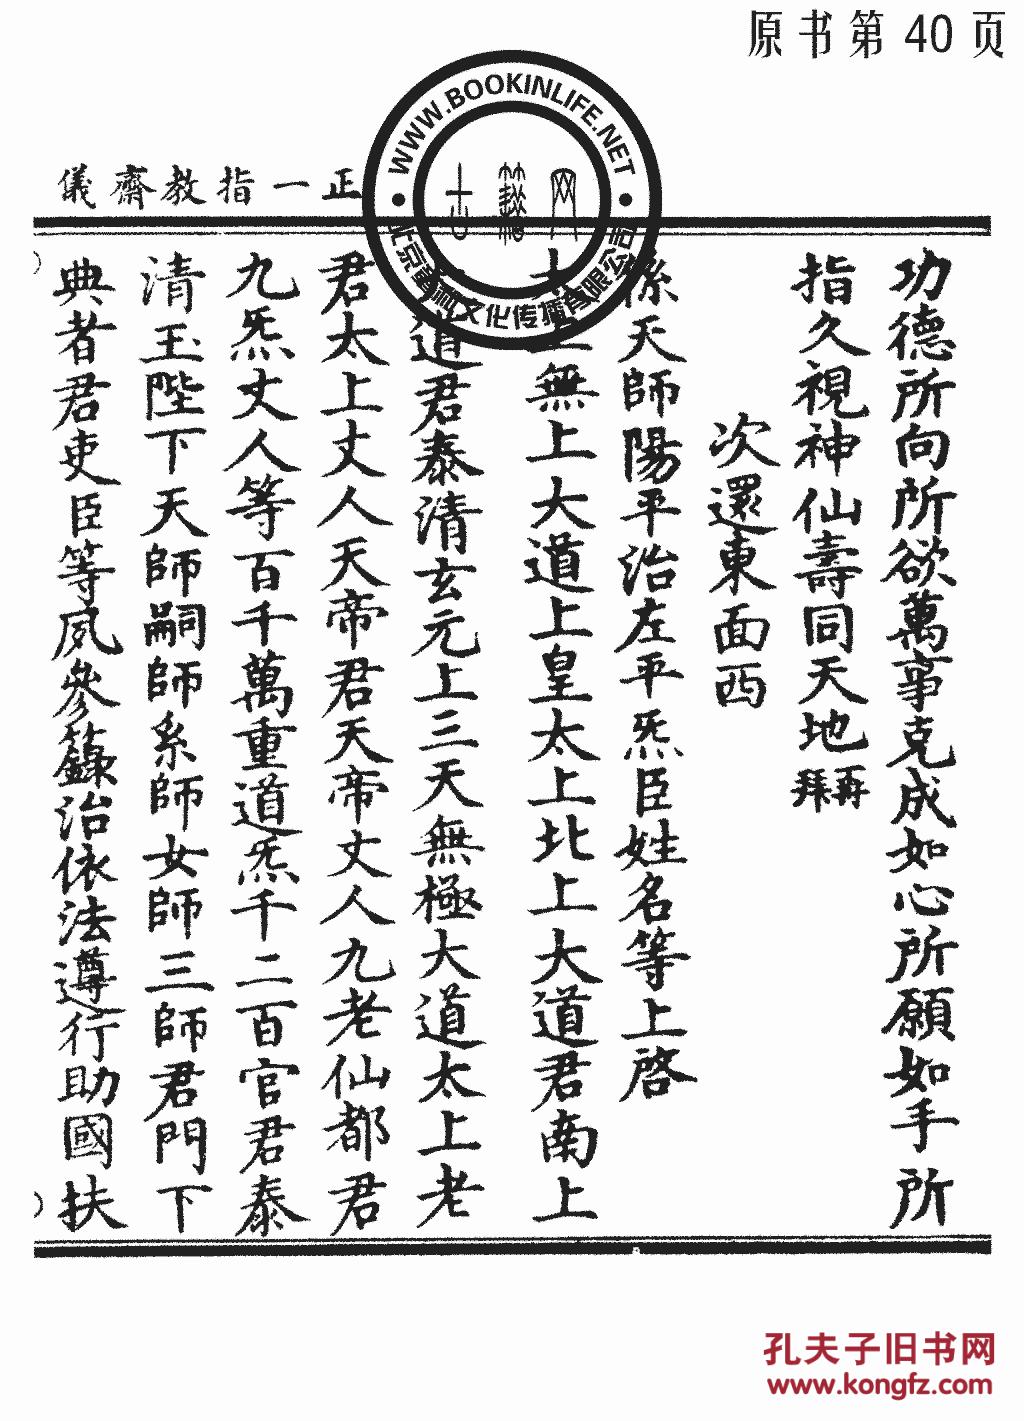 原书第 40 页
WWW.BOOKINLIFE.NET
正一指教齋儀
功德所向所欲萬事克成如心所願如手所
指久視神仙壽同天地再拜
次還東面西
係天師陽平治左平炁臣姓名等上啓
太上無上大道上皇太上北上大道君南上
道君泰清玄元上三天無極大道太上老
君太上丈人天帝君天帝丈人九老仙都君
九炁丈人等百千萬重道炁千二百官君泰
清玉陛下天師嗣師系師女師三師君門下
典者君吏臣等夙參籙治依法遵行助國扶
孔夫子旧书网
www.kongfz.com